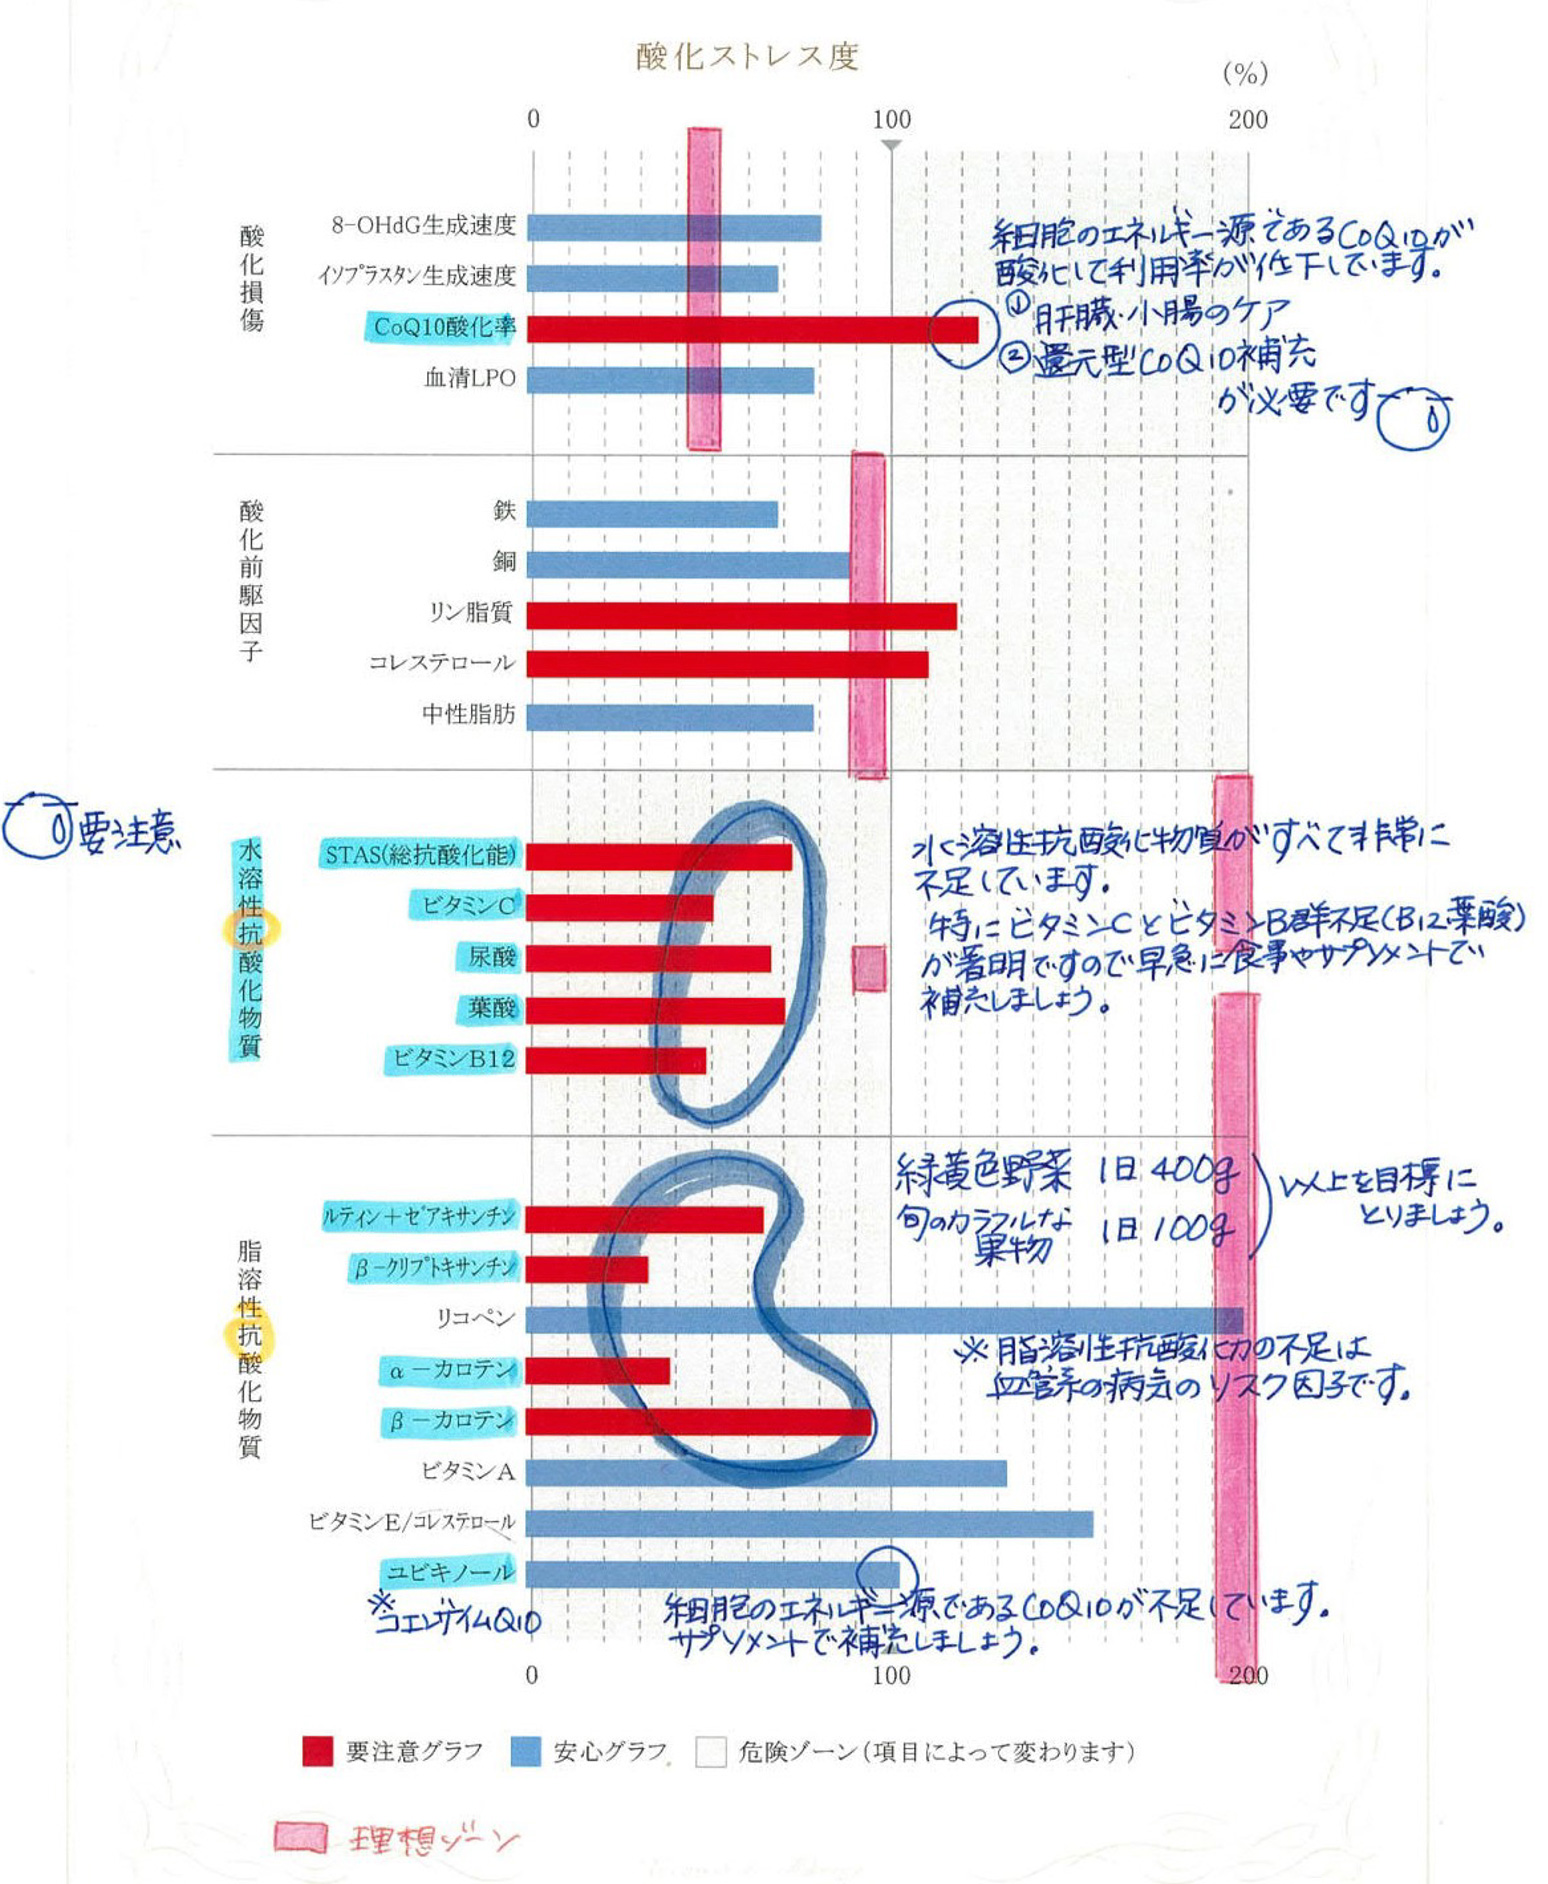 酸化ストレス度
(%)
0 100 200
酸化損傷
8-OHdG生成速度
イソプラスタン生成速度
CoQ10酸化率
血清LPO
細胞のエネルギー源であるCoQ10が
酸化して利用率が低下しています。
① 肝臓・小腸のケア
② 還元型CoQ10補充
が必要です
酸化前駆因子
鉄
銅
リン脂質
コレステロール
中性脂肪
要注意
水溶性抗酸化物質
STAS(総抗酸化能)
ビタミンC
尿酸
葉酸
ビタミンB12
水溶性抗酸化物質がすべて非常に
不足しています。
特にビタミンCとビタミンB群不足(B12,葉酸)
が著明ですので早急に食事やサプリメントで
補充しましょう。
脂溶性抗酸化物質
ルテイン+ゼアキサンチン
β-クリプトキサンチン
リコペン
α-カロテン
β-カロテン
ビタミンA
ビタミンE/コレステロール
ユビキノール
※コエンザイムQ10
緑黄色野菜 1日 400g
旬のカラフルな果物 1日 100g
以上を目標に
とりましょう。
※脂溶性抗酸化力の不足は
血管系の病気のリスク因子です。
細胞のエネルギー源であるCoQ10が不足しています。
サプリメントで補充しましょう。
0 100 200
要注意グラフ 安心グラフ 危険ゾーン(項目によって変わります)
理想ゾーン